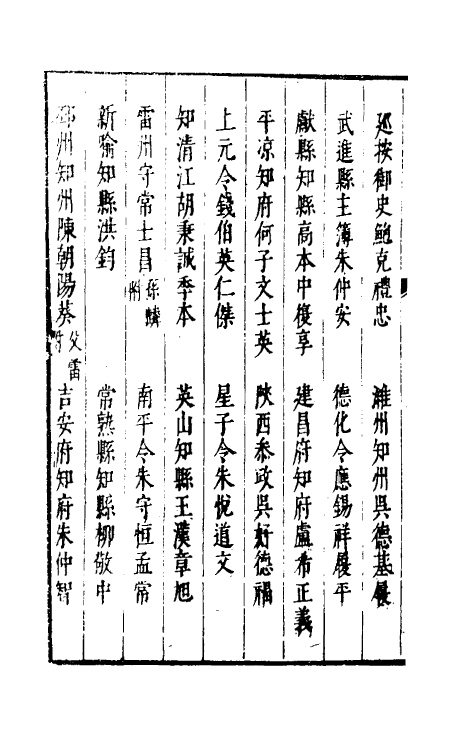 廵按御史鮑克禮忠　濰州知州吳德基履
武進縣主簿朱仲安　德化令應錫祥履平
獻縣知縣高本中復亨　建昌府知府盧希正義
平凉知府何子文士英　陜西叅政吳好德福
上元令錢伯英仁傑　星子令朱悅道文
知清江胡秉誠季本　英山知縣王漢章旭
雷州守常士昌孫麟附　南平令朱守恒孟常
新喻知縣洪鈞　常熟縣知縣柳敬中
邳州知州陳朝陽葵父雷附　吉安府知府朱仲智